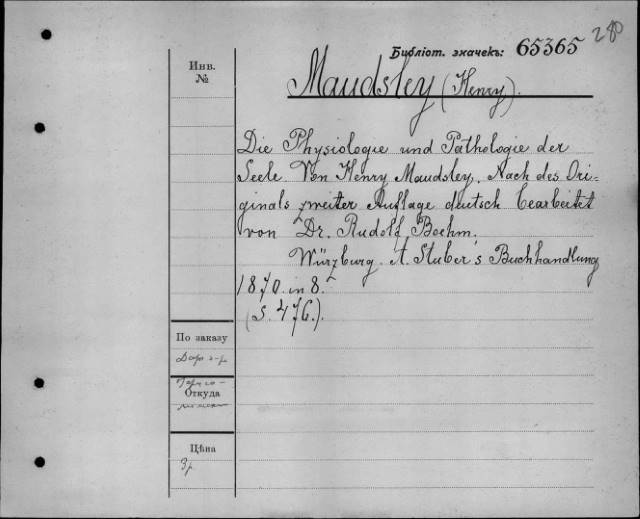 280
Библіот. значекъ: 65365
Инв.
№
Maudsley (Henry).
Die Physiologie und Pathologie der
Seele Von Henry Maudsley. Nach des Ori-
ginals zweiter Auflage deutsch bearbeitet
von Dr. Rudolf Boehm.
Würzburg. A. Stuber's Buchhandlung
1870. in 8.
(S. 476.).
По заказу
Откуда
Цѣна
3 р